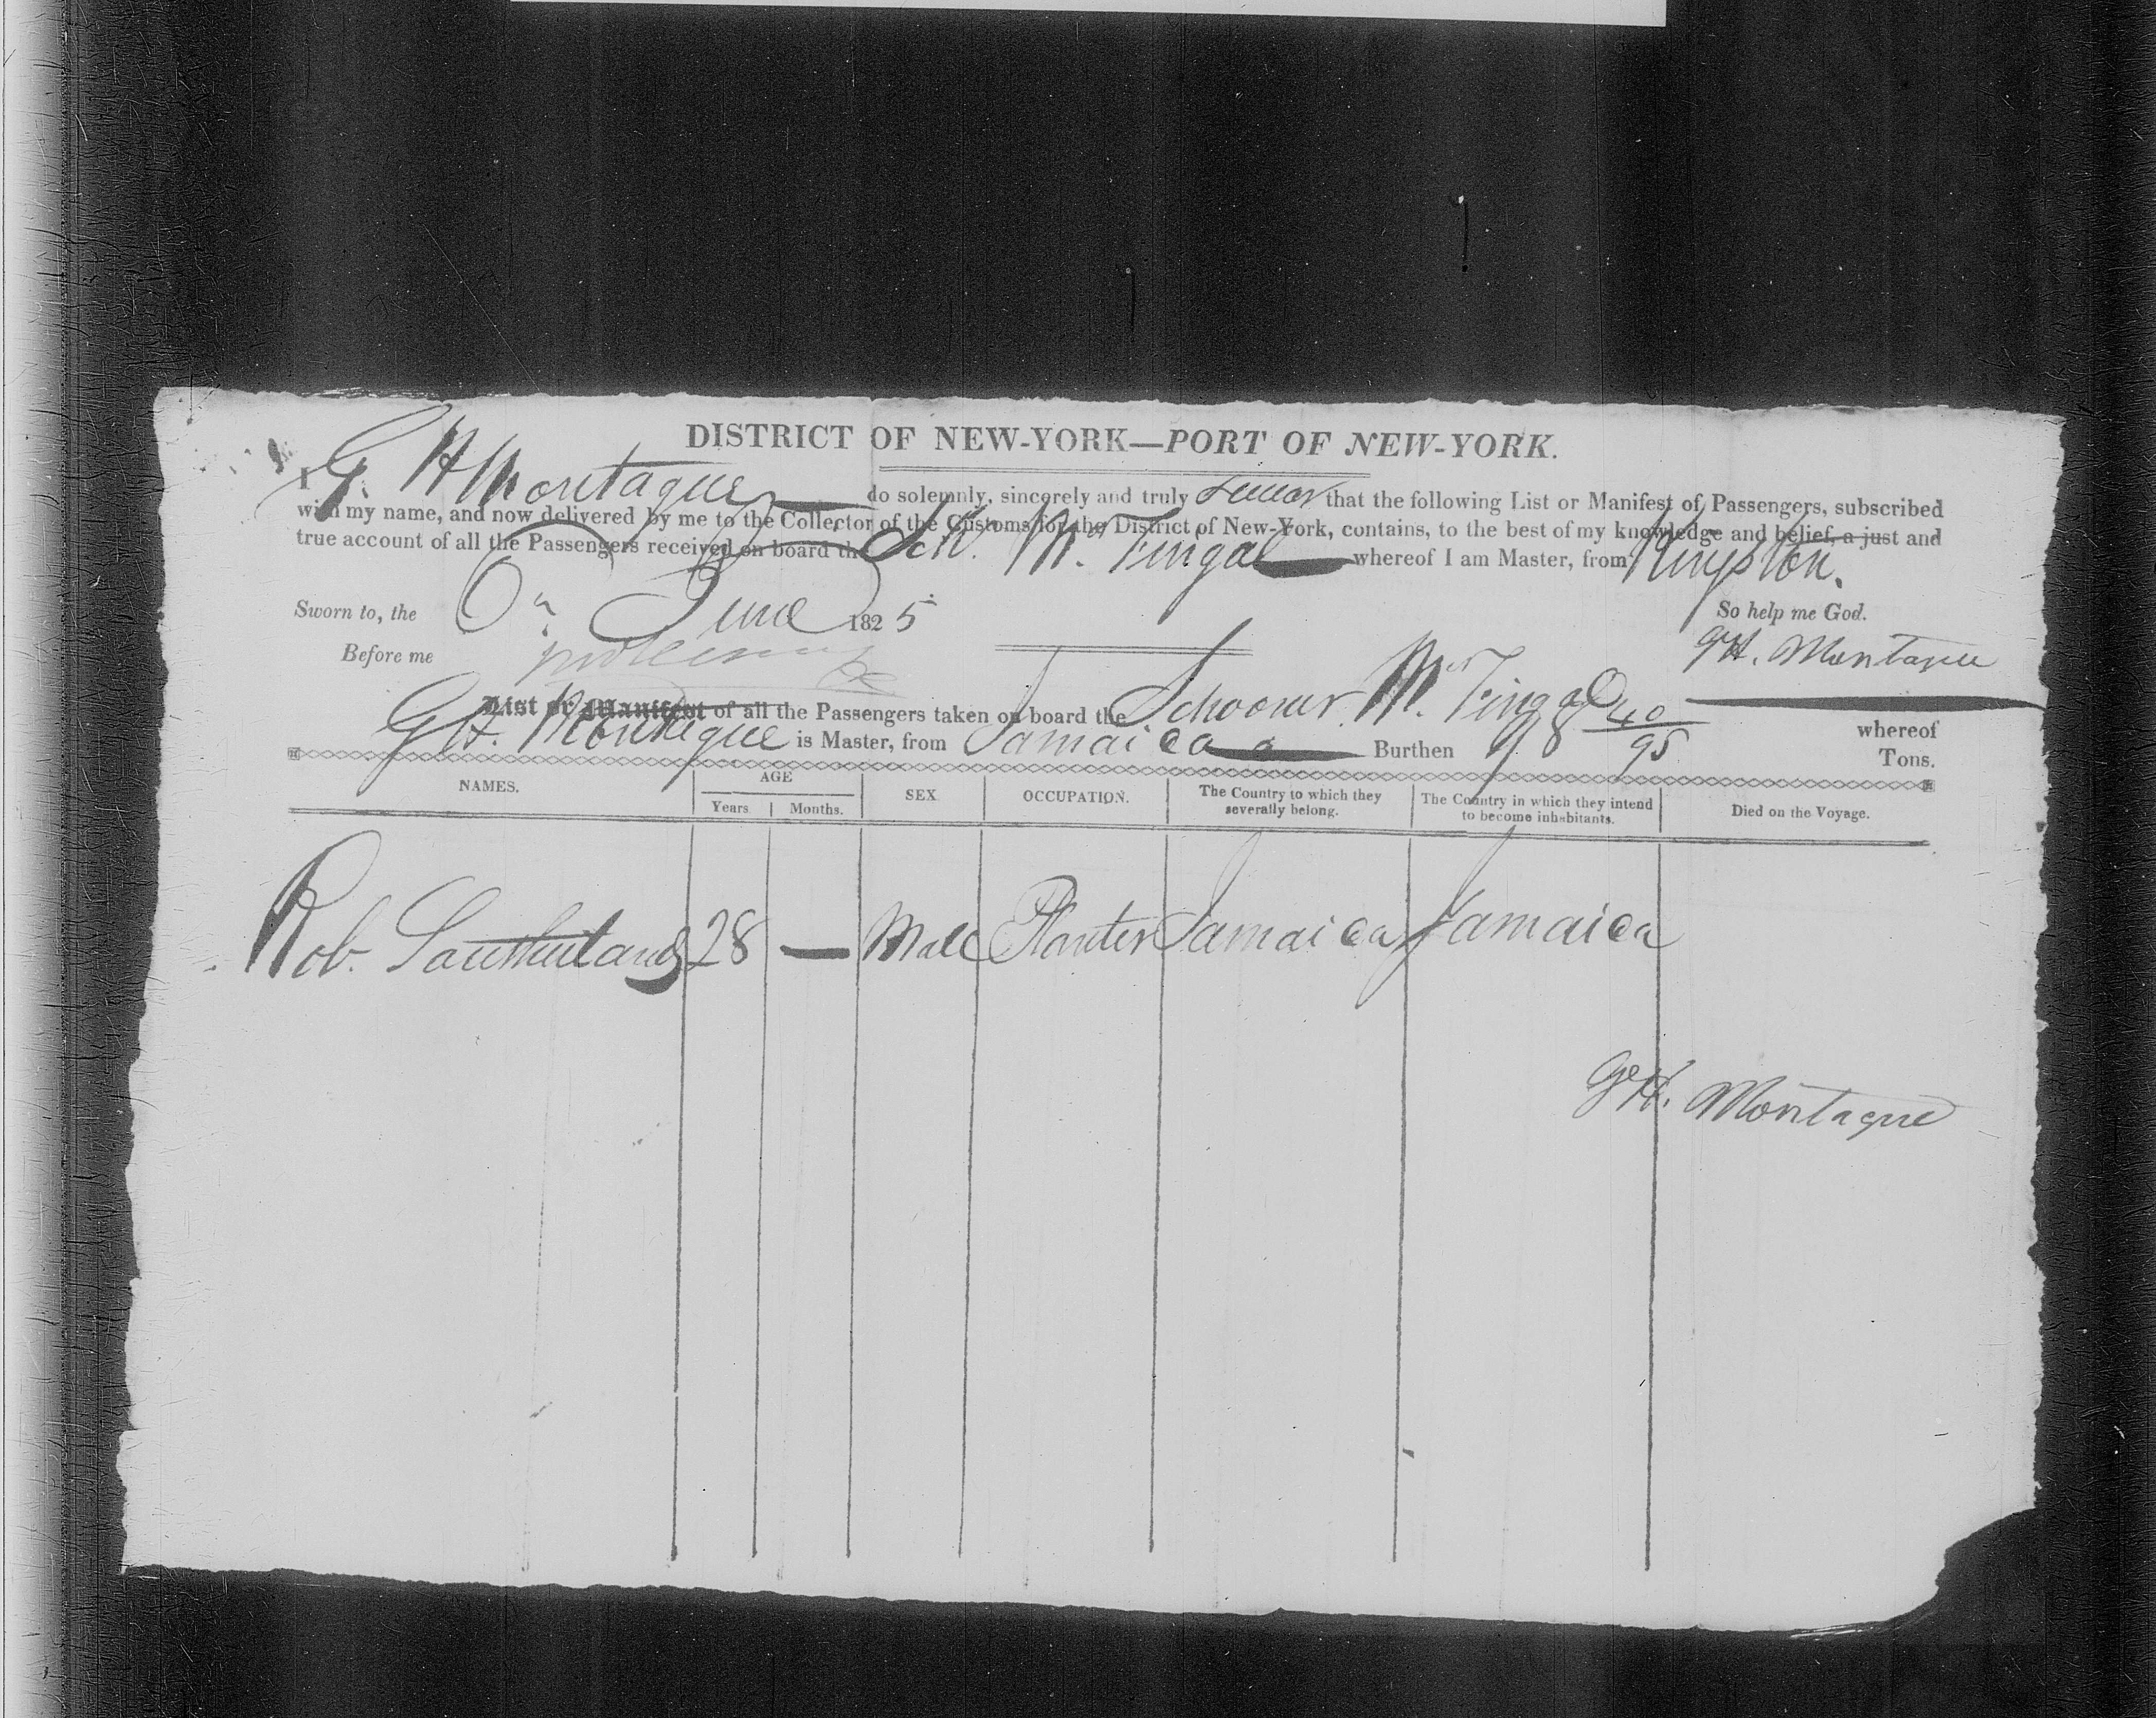 DISTRICT OF NEW-YORK—PORT OF NEW-YORK.
I G. H Montague do solemnly, sincerely and truly swear that the following List or Manifest of Passengers, subscribed
with my name, and now delivered by me to the Collector of the Customs for the District of New-York, contains, to the best of my knowledge and belief, a just and
true account of all the Passengers received on board the Sch. Mc Fingal whereof I am Master, from Kingston.
Sworn to, the 6 June 1825
So help me God.
Before me
GH. Montague
List or Manifest of all the Passengers taken on board the Schooner Mc Fingal whereof
GH. Montague is Master, from Jamaica Burthen 98 40/95 Tons.
NAMES. AGE SEX OCCUPATION. The Country to which they severally belong. The Country in which they intend to become inhabitants. Died on the Voyage.
Years Months.
Rob. Southerland 28 — Male Planter Jamaica Jamaica
GH. Montague